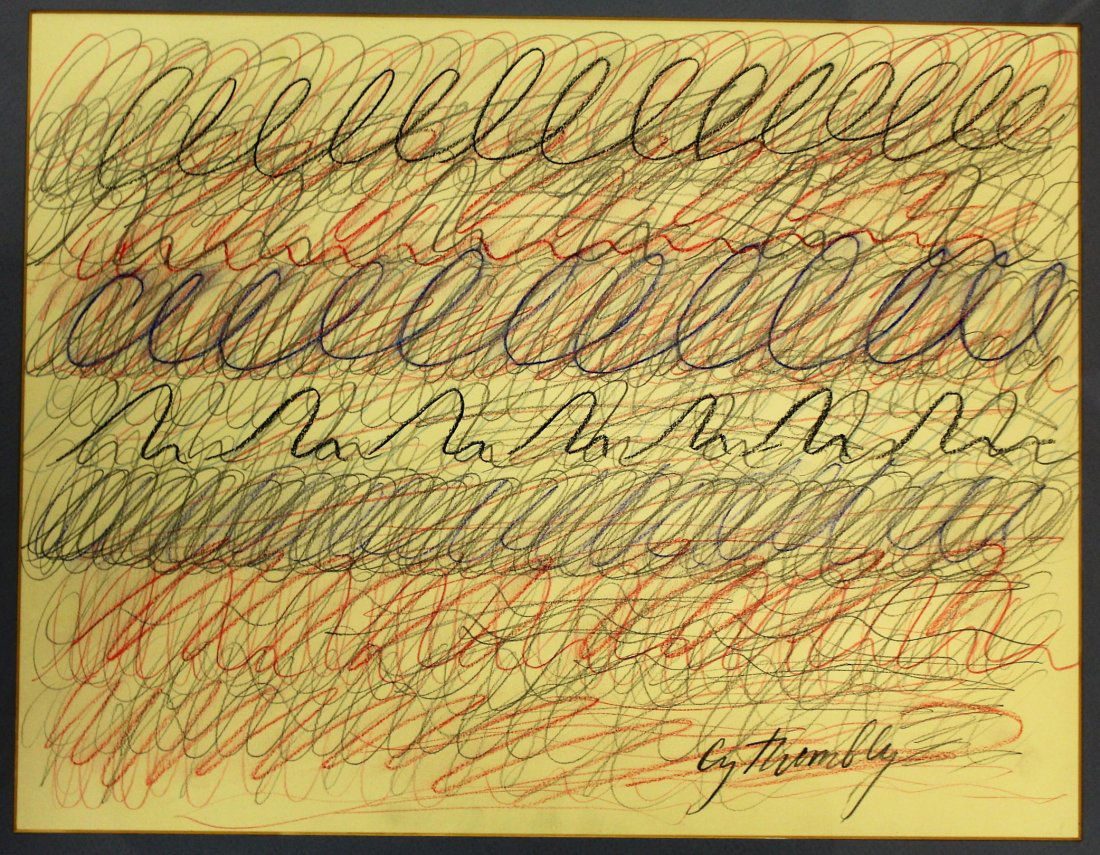 Cy Twombly